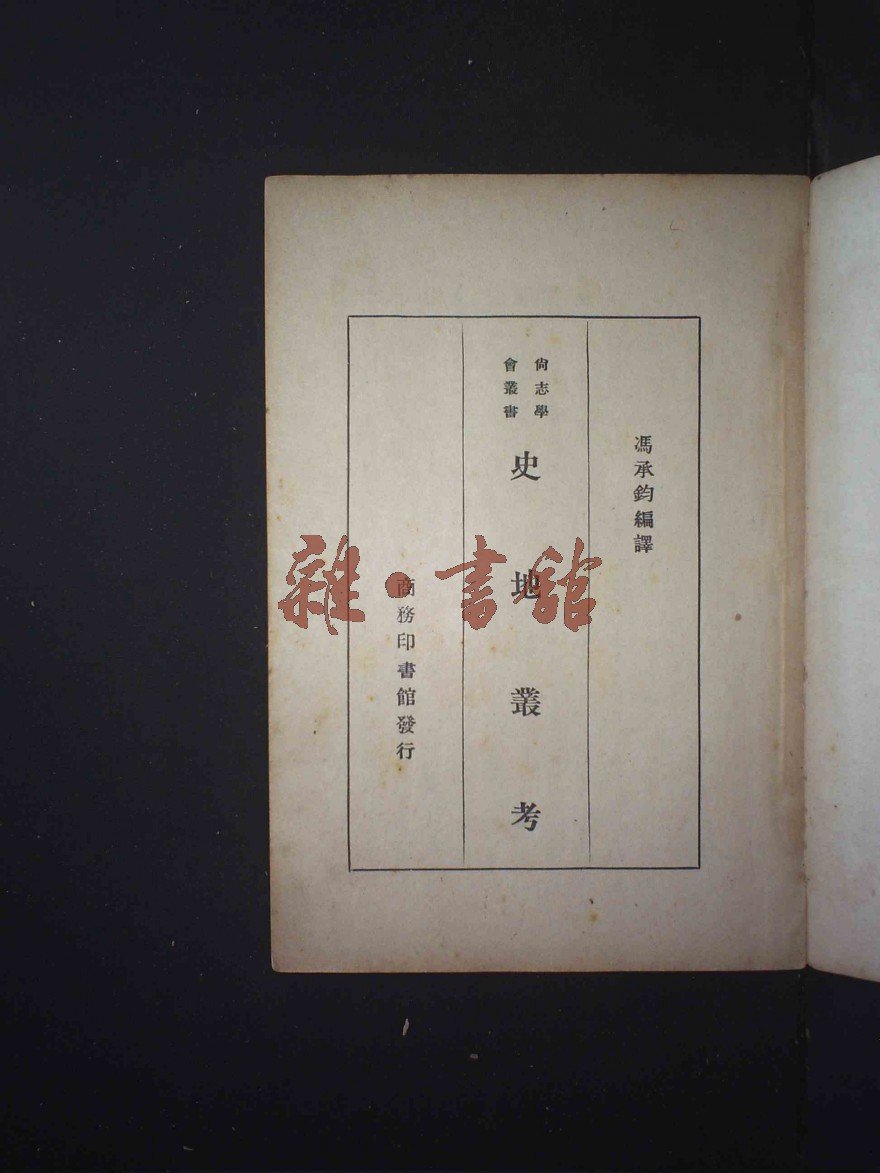 馮承鈞編譯
尙志學
會叢書
史地叢考
商務印書館發行
雜·書舘